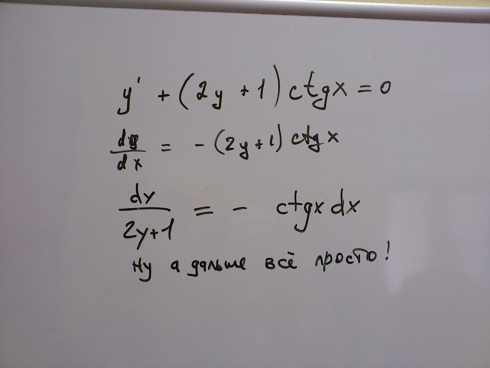 y' + (2y + 1) ctgx = 0
dy/dx = - (2y + 1) ctgx
dy/2y+1 = - ctgx dx
Ну а дальше всё просто!